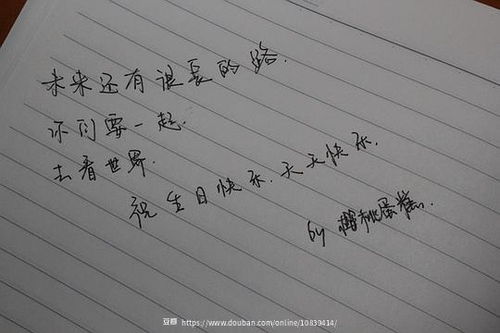 未来还有很长的路.
你们要一起.
去看世界.
祝生日快乐.天天快乐.
by 樱桃蛋糕.
豆瓣 https://www.douban.com/online/10839414/